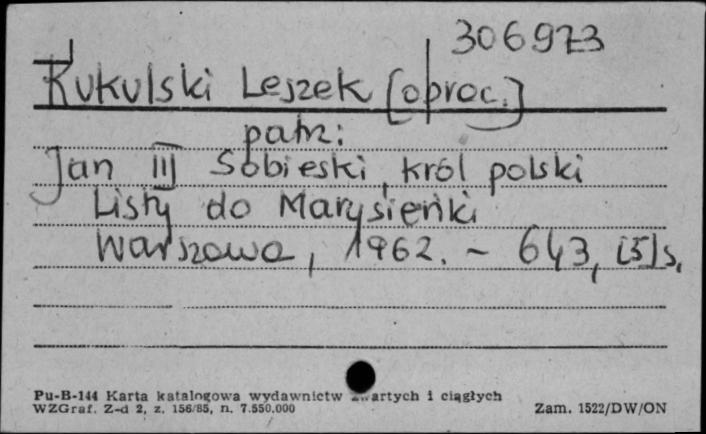 306973
Kukulski Leszek [oproc.]
patrz:
Jan III Sobieski, król polski
Listy do Marysieńki
Warszawa, 1962. - 643, [5] s.
Pu-B-144 Karta katalogowa wydawnictw zwartych i ciągłych
WZGraf. Z-d 2, z. 156/85, n. 7.550.000
Zam. 1522/DW/ON